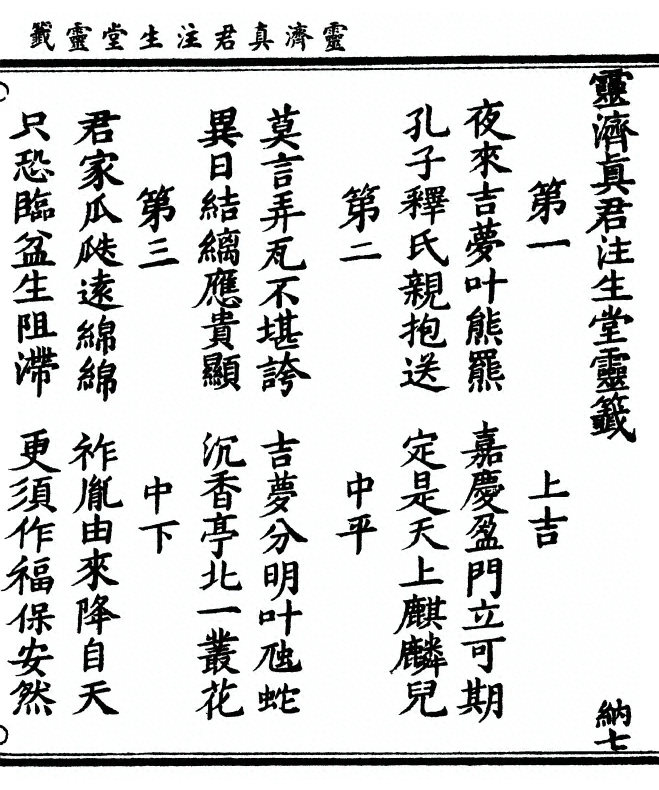 靈濟真君注生堂靈籤
靈濟真君注生堂靈籤　納七
第一　上吉
夜來吉夢叶熊羆　嘉慶盈門立可期
孔子釋氏親抱送　定是天上麒麟兒
第二　中平
莫言弄瓦不堪誇　吉夢分明叶虺蛇
異日結縭應貴顯　沉香亭北一叢花
第三　中下
君家瓜瓞遠綿綿　祚胤由來降自天
只恐臨盆生阻滯　更須作福保安然